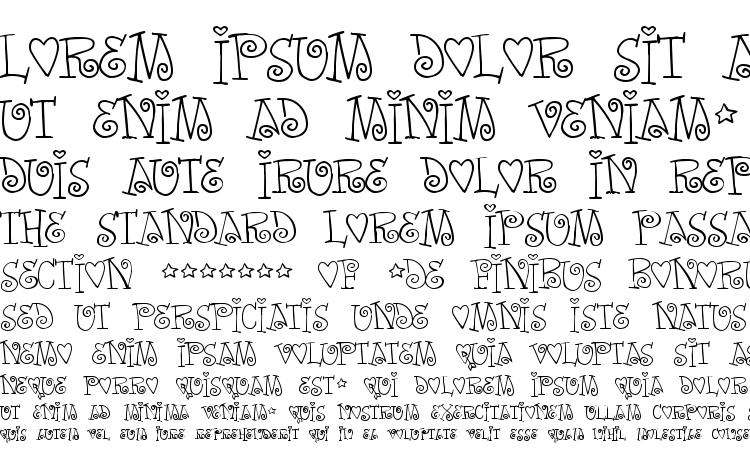 LOREM IPSUM DOLOR SIT A
UT ENIM AD MINIM VENIAM☆
DUIS AUTE IRURE DOLOR IN REP
THE STANDARD LOREM IPSUM PASSA
SECTION ☆☆☆☆☆☆☆ OF ☆DE FINIBUS BONORU
SED UT PERSPICIATIS UNDE OMNIS ISTE NATUS
NEMO ENIM IPSAM VOLUPTATEM QUIA VOLUPTAS SIT AS
NEQUE PORRO QUISQUAM EST☆ QUI DOLOREM IPSUM QUIA DOLOR
UT ENIM AD MINIMA VENIAM☆ QUIS NOSTRUM EXERCITATIONEM ULLAM CORPORIS S
QUIS AUTEM VEL EUM IURE REPREHENDERIT QUI IN EA VOLUPTATE VELIT ESSE QUAM NIHIL MOLESTIAE CONSE